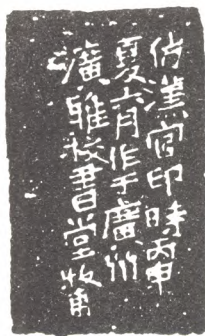 仿漢官印時丙申
夏六月作于廣州
廣雅校書堂牧甫